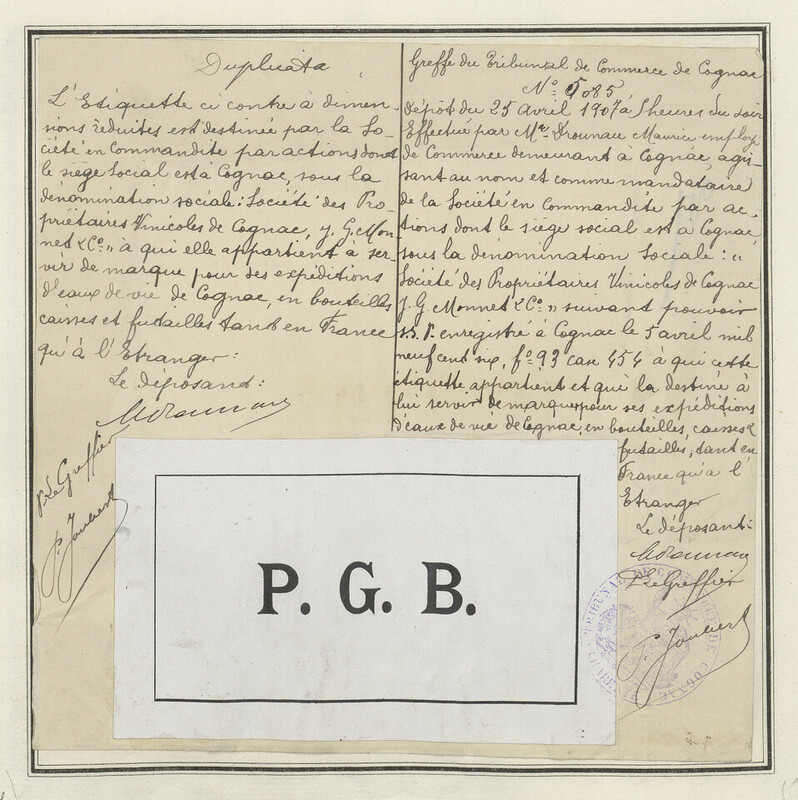 Duplicata
L'Etiquette ci contre à dimen-
sions réduites est destinée par la So-
ciété en Commandite par actions dont
le siège Social est à Cognac, sous la
dénomination sociale: Société des Pro-
priétaires Vinicoles de Cognac, J. G. Mon-
net & Co. " à qui elle appartient à ser-
vir de marque pour ses expéditions
d'eaux de vie de Cognac, en bouteilles
caisses et futailles tant en France
qu'à l'Etranger:
Le déposant:
P. Le Greffier
P. Joubert
Greffe du Tribunal de Commerce de Cognac
No. 5085
Dépôt du 25 Avril 1907 à 5 heures du soir
Effectué par Mr. Drounau Maurice employé
de Commerce demeurant à Cognac, agis-
sant au nom et comme mandataire
de la Société en Commandite par ac-
tions dont le siège social est à Cognac
sous la dénomination Sociale: "
Société des Propriétaires Vinicoles de Cognac
J. G. Monnet & Co. " suivant pouvoir
s.s. P. enregistré à Cognac le 5 avril mil
neuf cent six, fo. 93 case 454 à qui cette
étiquette appartient et qui la destine à
lui servir de marque pour ses expéditions
d'eaux de vie de Cognac, en bouteilles, caisses &
futailles, tant en
France qu'à l'
Etranger
Le déposant:
P. Le Greffier
P. Joubert
TRIBUNAL DE COMMERCE DE COGNAC
P. G. B.